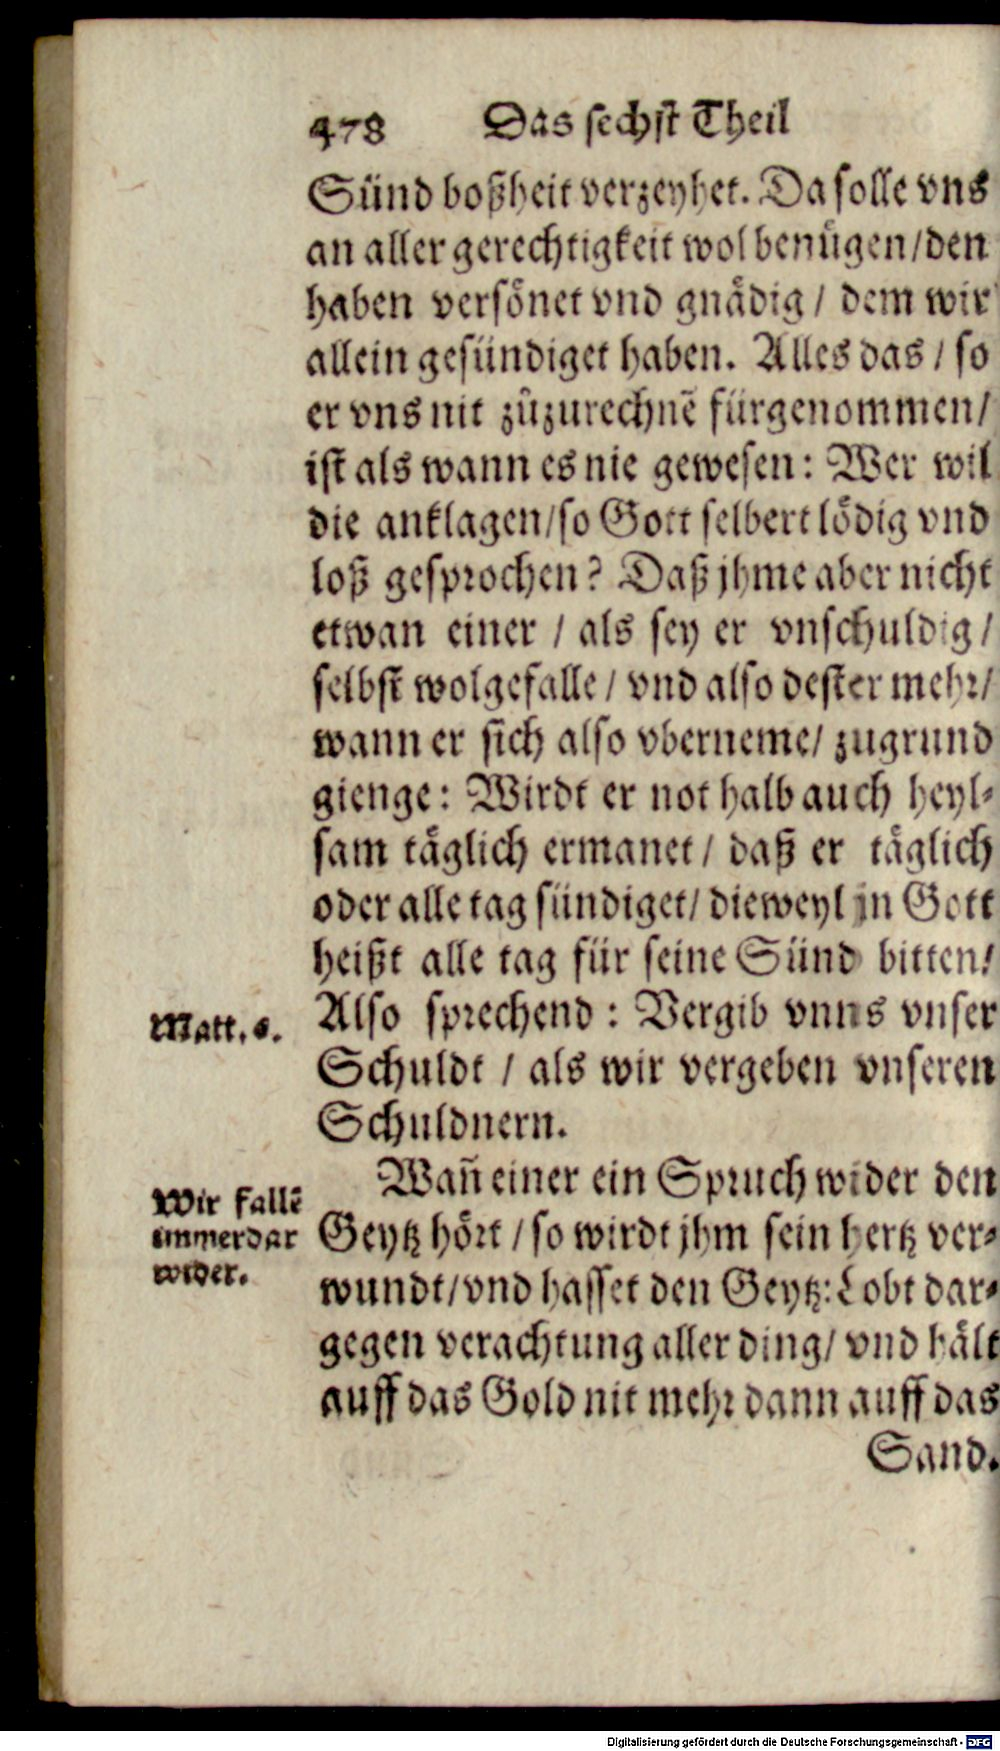 478 Das sechst Theil
Sünd boßheit verzeyhet. Da solle vns
an aller gerechtigkeit wol benügen/den
haben versönet vnd gnädig / dem wir
allein gesündiget haben. Alles das / so
er vns nit zůzurechnẽ fürgenommen/
ist als wann es nie gewesen: Wer wil
die anklagen/so Gott selbert lödig vnd
loß gesprochen? Daß jhme aber nicht
etwan einer / als sey er vnschuldig/
selbst wolgefalle/ vnd also dester mehr/
wann er sich also vberneme/ zugrund
gienge: Wirdt er not halb auch heyl-
sam täglich ermanet/ daß er täglich
oder alle tag sündiget/ dieweyl jn Gott
heißt alle tag für seine Sünd bitten/
Matt. 6.
Also sprechend : Vergib vnns vnser
Schuldt / als wir vergeben vnseren
Schuldnern.
Wir fallẽ
immerdar
wider.
Wañ einer ein Spruch wider den
Geytz hört / so wirdt jhm sein hertz ver-
wundt/vnd hasset den Geytz: Lobt dar-
gegen verachtung aller ding/ vnd hält
auff das Gold nit mehr dann auff das
Sand.
Digitalisierung gefördert durch die Deutsche Forschungsgemeinschaft - DFG